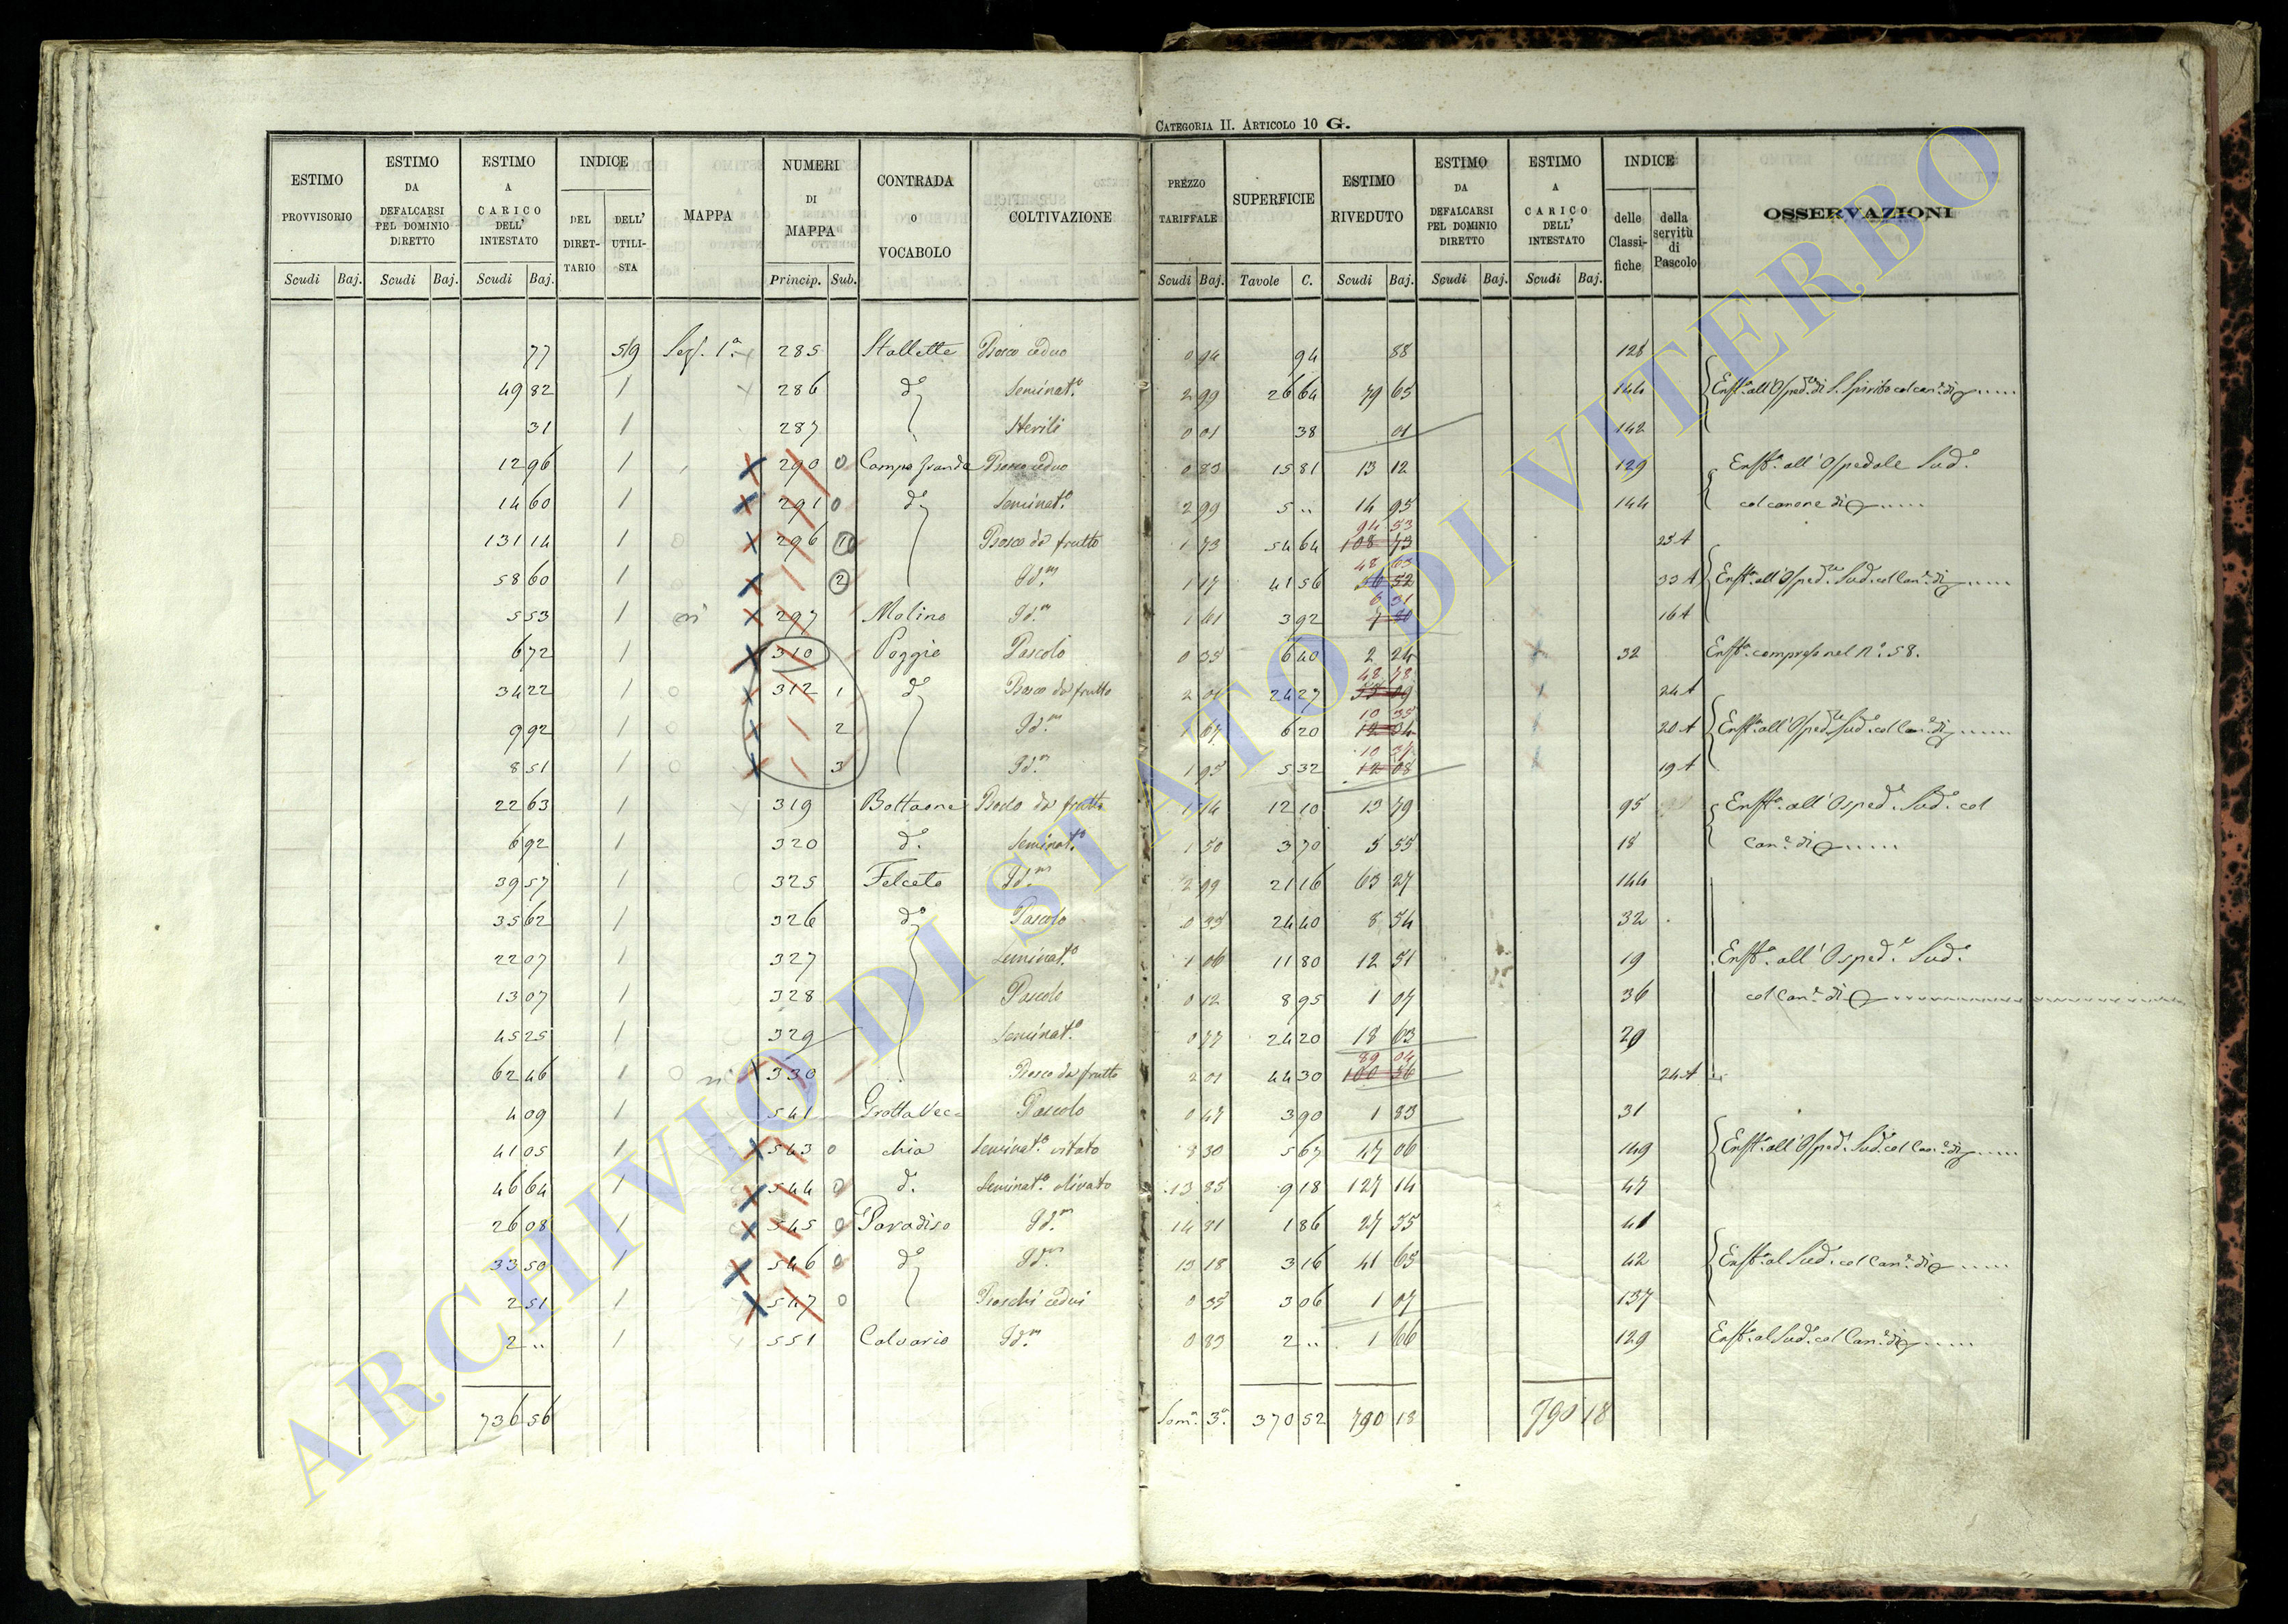 CATEGORIA II. ARTICOLO 10 G.
ESTIMO PROVVISORIO Scudi Baj.
ESTIMO DA DEFALCARSI PEL DOMINIO DIRETTO Scudi Baj.
ESTIMO A CARICO DELL' INTESTATO Scudi Baj.
INDICE DEL DIRET- TARIO DELL' UTILI- STA
MAPPA
NUMERI DI MAPPA Princip. Sub.
CONTRADA O VOCABOLO
COLTIVAZIONE
PREZZO TARIFFALE Scudi Baj.
SUPERFICIE Tavole C.
ESTIMO RIVEDUTO Scudi Baj.
ESTIMO DA DEFALCARSI PEL DOMINIO DIRETTO Scudi Baj.
ESTIMO A CARICO DELL' INTESTATO Scudi Baj.
INDICE delle Classi- fiche della servitù di Pascolo
OSSERVAZIONI
77 519 Sez. 1ª 285 Stallette Bosco ceduo 0 94 94 88 128
49 82 1 286 d° Seminat.° 2 99 26 64 79 65 144 Enft.ª all'Osped.le di S. Spirito col can.e di
31 1 287 Sterili 0 01 38 01 142
12 96 1 290 0 Campo grande Bosco ceduo 0 83 15 81 13 12 129 Enft.ª all'Ospedale Sud.°
14 60 1 291 0 d° Seminat.° 2 99 5 .. 14 95 144 col canone di
94 53
131 14 1 296 1 Bosco da frutto 1 73 54 64 108 73 25 A
48 63
58 60 1 2 Id.m 1 17 41 56 52 33 A Enft.ª all'Osped.le Sud. col Can.e di
6 31
5 53 1 297 Molino Id.m 1 61 3 92 16 A
6 72 1 310 Poggio Pascolo 0 35 6 40 2 24 32 Enft.ª compreso nel N.° 58.
48 78
34 22 1 312 1 d° Bosco da frutto 2 01 24 27 24 A
10 35
9 92 1 2 Id.m 1 67 6 20 12 34 20 A Enft.ª all'Osped.le Sud.° col Can.e di
10 37
8 51 1 3 Id.m 1 95 5 32 12 08 19 A
22 63 1 319 Bottaone Bosco da frutto 1 14 12 10 13 79 95 Enft.ª all'Osped.e Sud.° col
6 92 1 320 d.° Seminat.° 1 50 3 70 5 55 18 Can.e di
39 57 1 325 Felceto Id.m 2 99 21 16 63 27 144
35 62 1 326 d° Pascolo 0 35 24 40 8 54 32
22 07 1 327 Seminat.° 1 06 11 80 12 51 19 Enft.ª all'Osped.e Sud.°
13 07 1 328 Pascolo 0 12 8 95 1 07 36 col Can.e di
45 25 1 329 Seminat.° 0 77 24 20 18 63 29
89 04
62 46 1 330 Bosco da frutto 2 01 44 30 100 36 24 A
4 09 1 541 Grotta Vec= Pascolo 0 47 3 90 1 83 31
41 05 1 543 0 chia Seminat.° vitato 8 30 5 67 47 06 149 Enft.ª all'Osped.e Sud. col Can.e di
46 64 1 544 0 d. Seminat.° olivato 13 85 9 18 127 14 47
26 08 1 545 0 Paradiso Id.m 14 81 1 86 27 55 41
33 50 1 546 0 d° Id.m 13 18 3 16 41 65 42 Enft.ª al Sud.° col Can.e di
2 51 1 547 0 Boschi cedui 0 35 3 06 1 07 137
2 .. 1 551 Calvario Id.m 0 83 2 .. 1 66 129 Enft.ª al Sud.° col Can.e di
736 56 Som.ª 3ª 370 52 790 18 790 18
ARCHIVIO DI STATO DI VITERBO